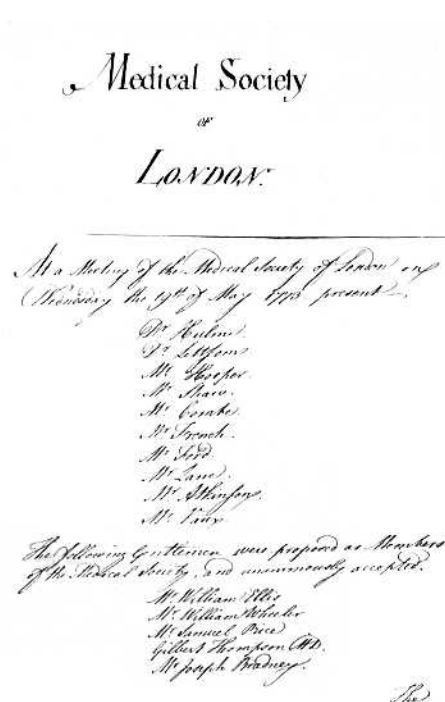 Medical Society
OF
LONDON.
At a Meeting of the Medical Society of London on
Wednesday the 19th of May 1773 present
Dr Hulme.
Dr Lettsom.
Mr Hooper.
Mr Shaw.
Mr Combe.
Mr French.
Mr Ford.
Mr Lane.
Mr Atkinson.
Mr Vaux.
The following Gentlemen were proposed as Members
of the Medical Society, and unanimously accepted.
Mr William Ellis
Mr William Wheeler
Mr Samuel Price
Gilbert Thompson MD.
Mr Joseph Bradney.
The